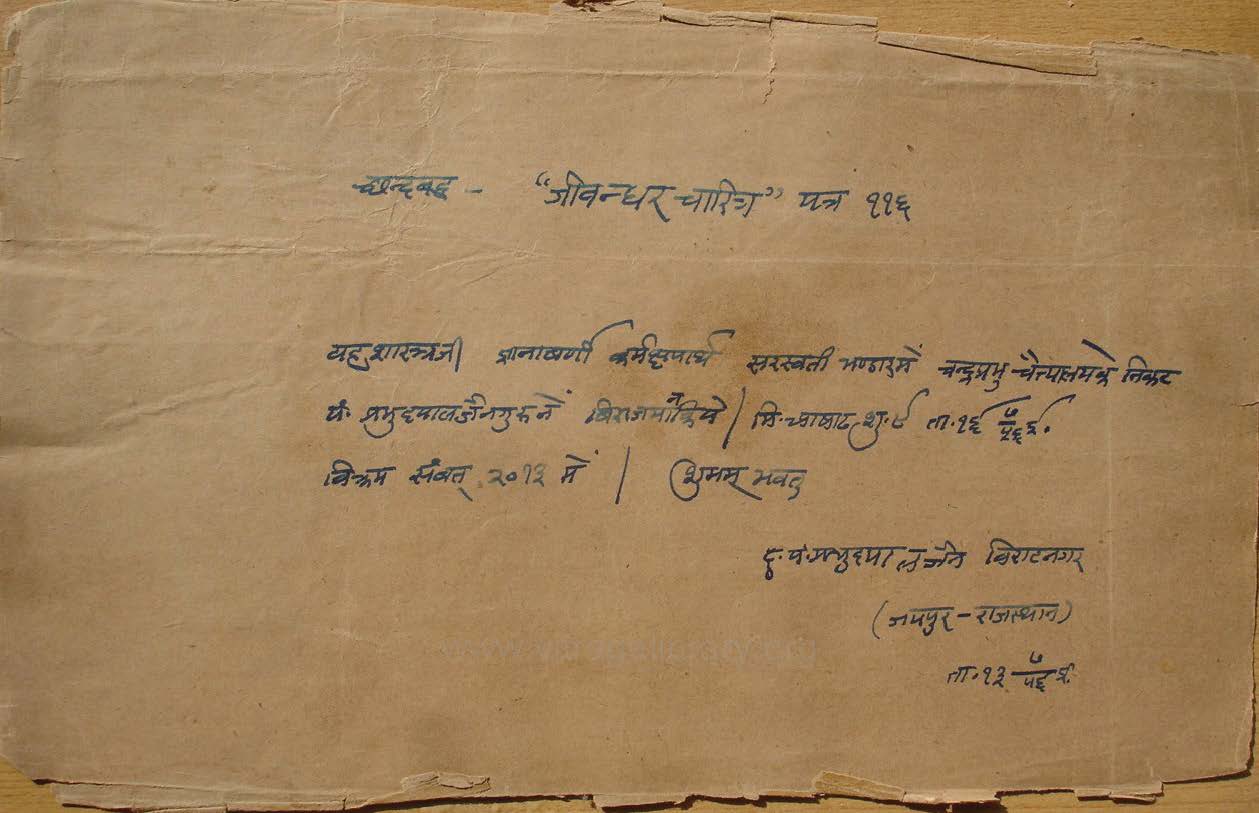 छन्दबद्ध - “जीवन्धर चारित्र” पत्र ११६
यह शास्त्रजी ज्ञानावर्णी कर्मक्षयार्थ सरस्वती भण्डारमें चन्द्रप्रभु चैत्यालयके निकट
पं. प्रभुदयाल जैन गुरुने विराजमान किये | मि. आषाढ शु. ता.
विक्रम संवत् २०१३ में | शुभम् भवतु
द. पं. प्रभुदयाल जैन विराटनगर
(जयपुर - राजस्थान)
ता. १३ ७/५६ ई.